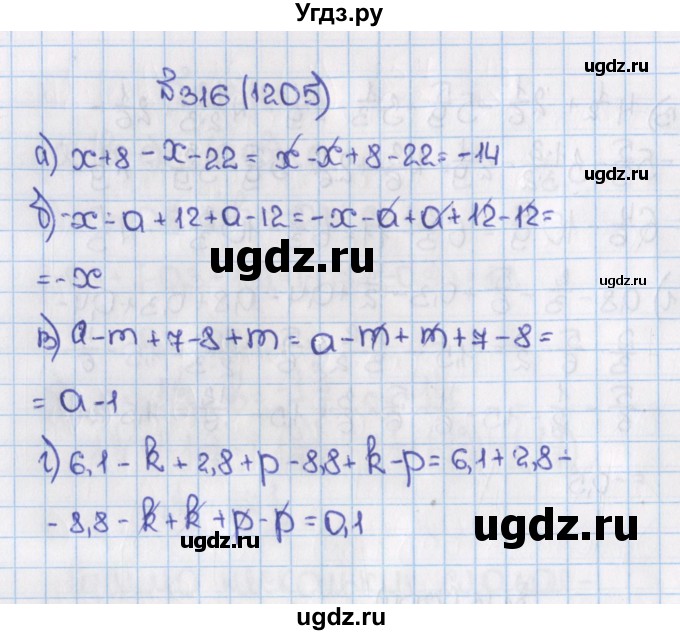 Угдз.ру
ugdz.ru
№316 (1205)
а) x+8-x-22= x-x+8-22=-14
ugdz.ru
б) -x-a+12+a-12=-x-a+a+12-12=
ugdz.ru
=-x
ugdz.ru
в) a-m+7-8+m=a-m+m+7-8=
= a-1
ugdz.ru
г) 6,1-k+2,8+p-8,8+k-p=6,1+2,8-
-8,8-k+k+p-p=0,1
ugdz.ru
ugdz.ru
ugdz.ru